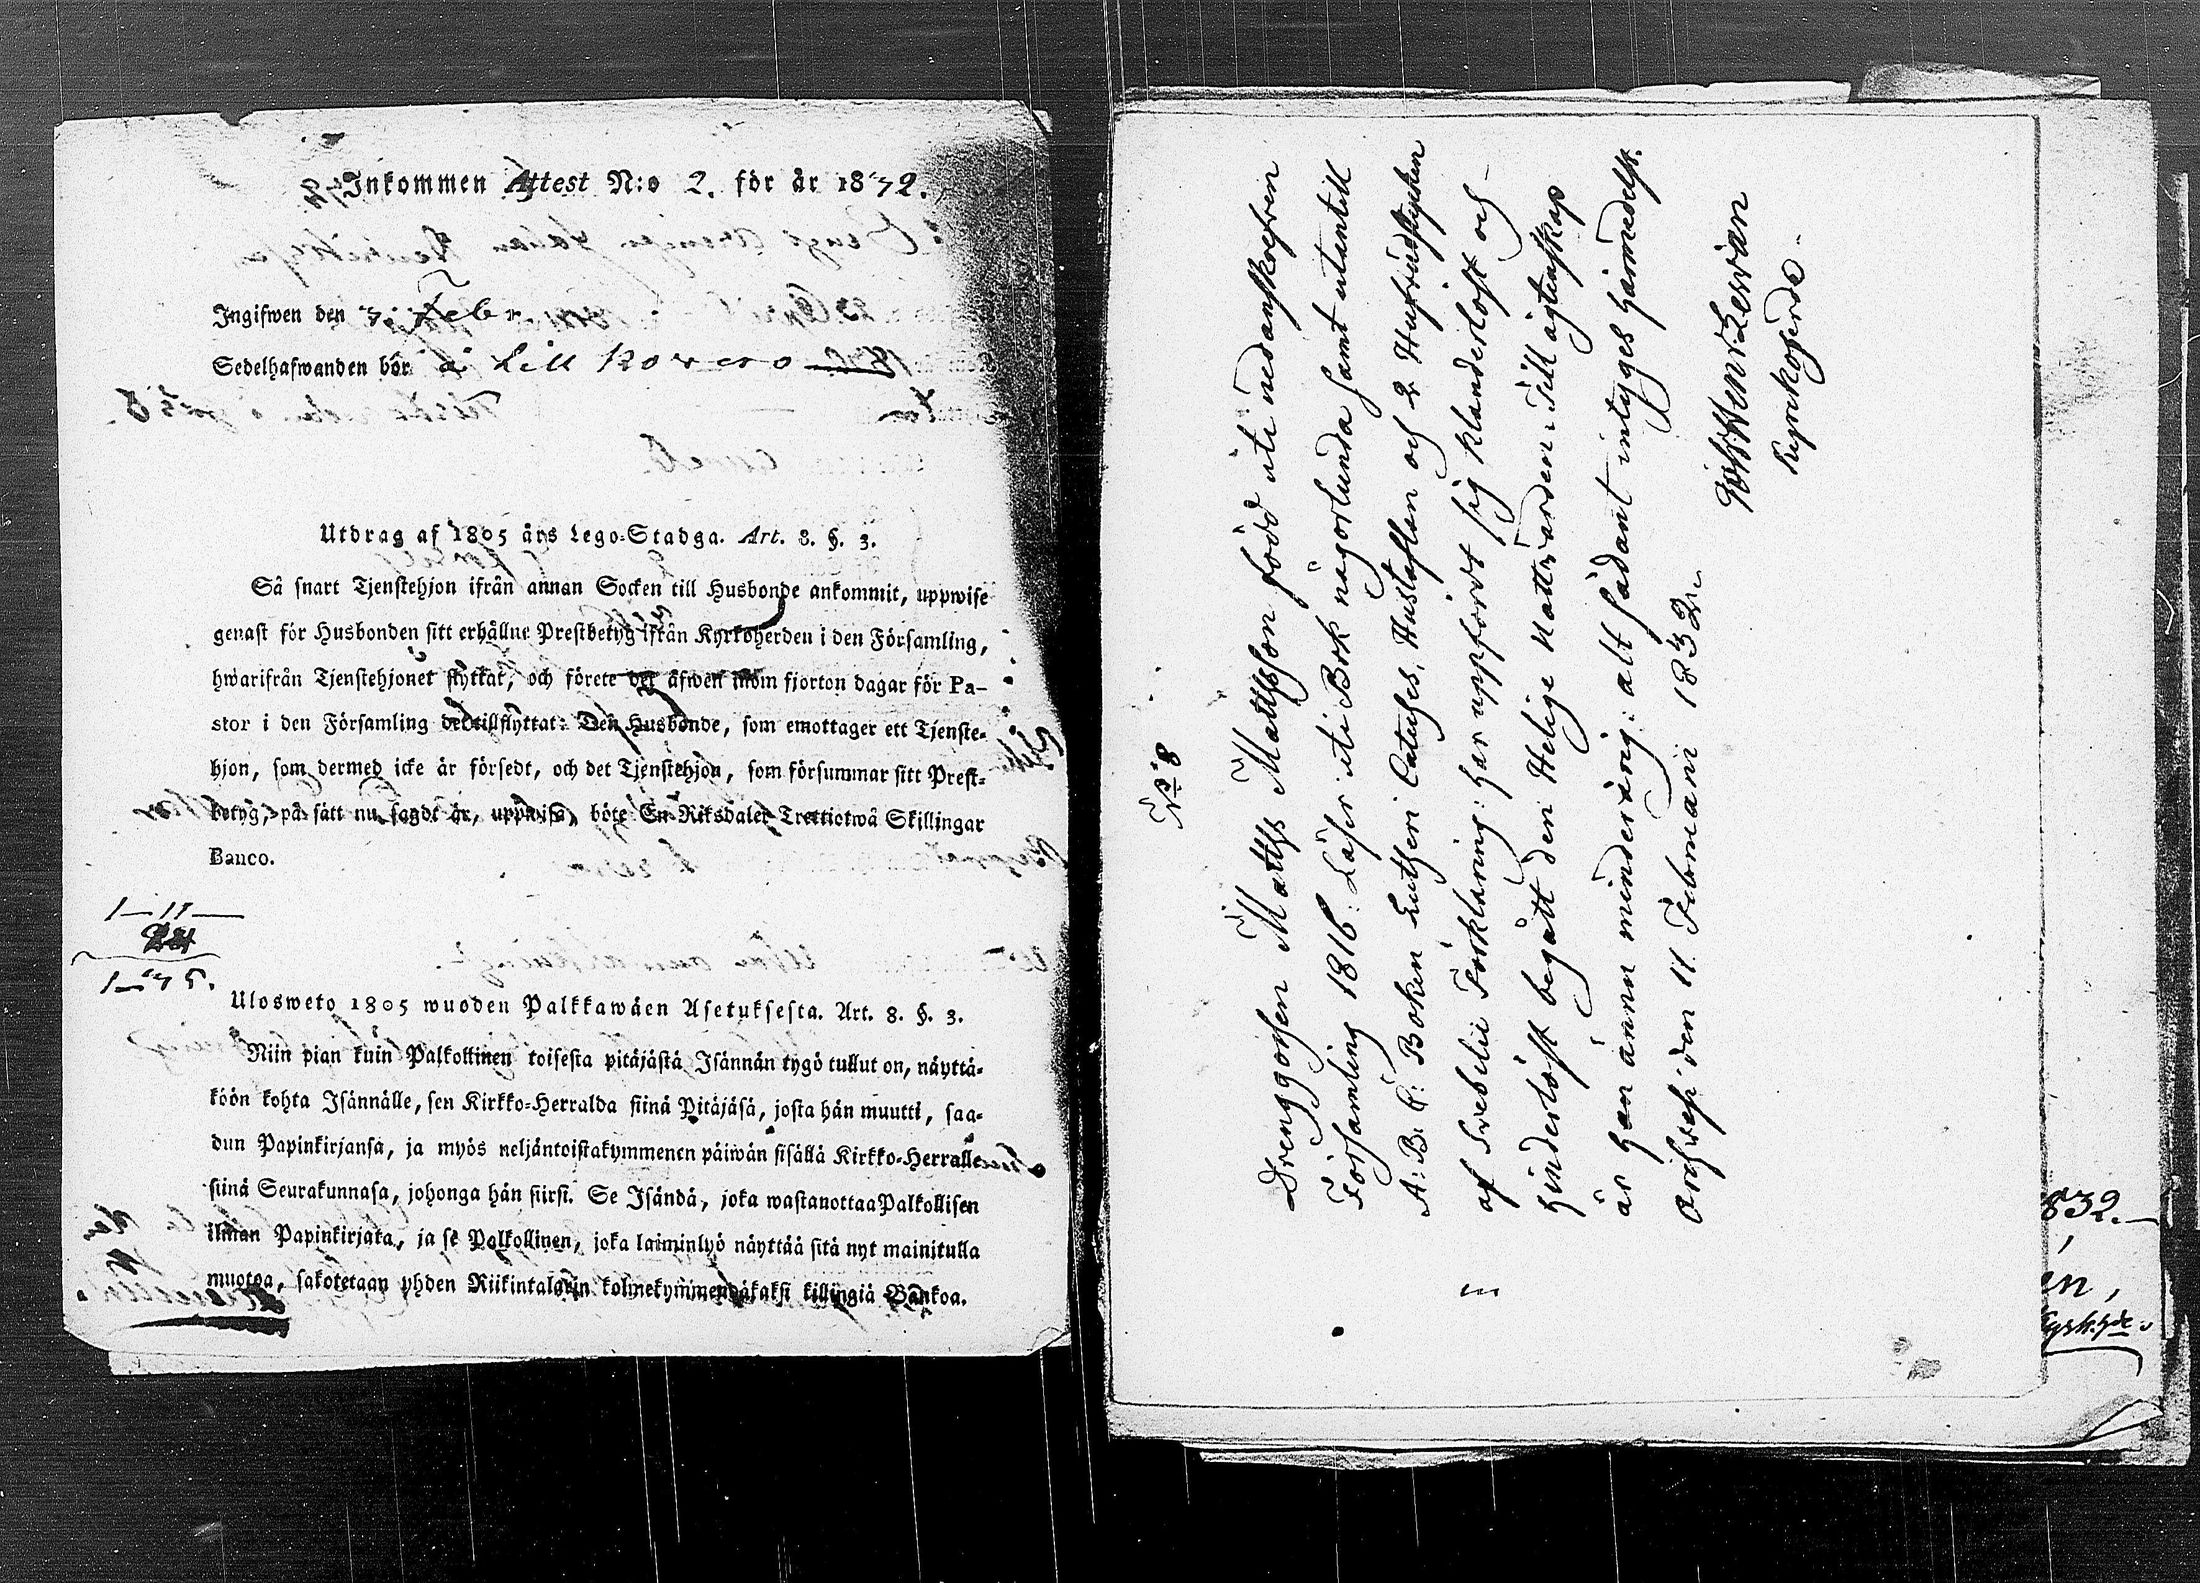 Inkommen Attest N:o 2. för år 1832.
Ingifwen den 3. Febr
Sedelhafwanden bör å Lill Rovero
Utdrag af 1805 års Lego-Stadga. Art. 8. §. 3.
Så snart Tjenstehjon ifrån annan Socken till Husbonde ankommit, uppwise
genast för Husbonden sitt erhållne Prestbetyg ifrån Kyrkoherden i den Församling,
hwarifrån Tjenstehjonet flyttat, och förete det äfwen inom fjorton dagar för Pa-
stor i den Församling det tillflyttat: Den Husbonde, som emottager ett Tjenste-
hjon, som dermed icke är försedt, och det Tjenstehjon, som försummar sitt Prest-
betyg, på sätt nu sagdt är, uppwisa, böte En Riksdaler Trettiotwå Skillingar
Banco.
1—11—
1—35.
Ulosweto 1805 wuoden Palkkawäen Asetuksesta. Art. 8. §. 3.
Niin pian kuin Palkollinen toisesta pitäjästä Isännän tygö tullut on, näyttä-
köön kohta Isännälle, sen Kirkko-Herralda siinä Pitäjäsä, josta hän muutti, saa-
dun Papinkirjansa, ja myös neljäntoistakymmenen päiwän sisällä Kirkko-Herralle
siinä Seurakunnasa, johonga hän siirsi. Se Isändä, joka wastanottaa Palkollisen
ilman Papinkirjata, ja se Palkollinen, joka laiminlyö näyttää sitä nyt mainitulla
muotoa, sakotetaan yhden Riikintalarin kolmekymmendäkaksi killingiä Bankoa.
N:o 8
Drenggosen Matths Matthsson född uti nedanskrefven
Församling 1816: Läser uti Bok någorlunda samt utantill
A: B: C: Boken Lutheri Cateches, Hustaflan och 2 Hufvudstycken
af Svebelii Förklaring: har uppfördt sig klanderlöst och
hinderlöst begått den Helige Nattvarden: Till ägtenskap
är han ännu minderårig: alt sådant intyges härmedelst.
Orihvesi den 11 Februarii 1832.
Joh Henr Lewan
Kyrckoherde.
832.—
en,
Kyrk.hde.